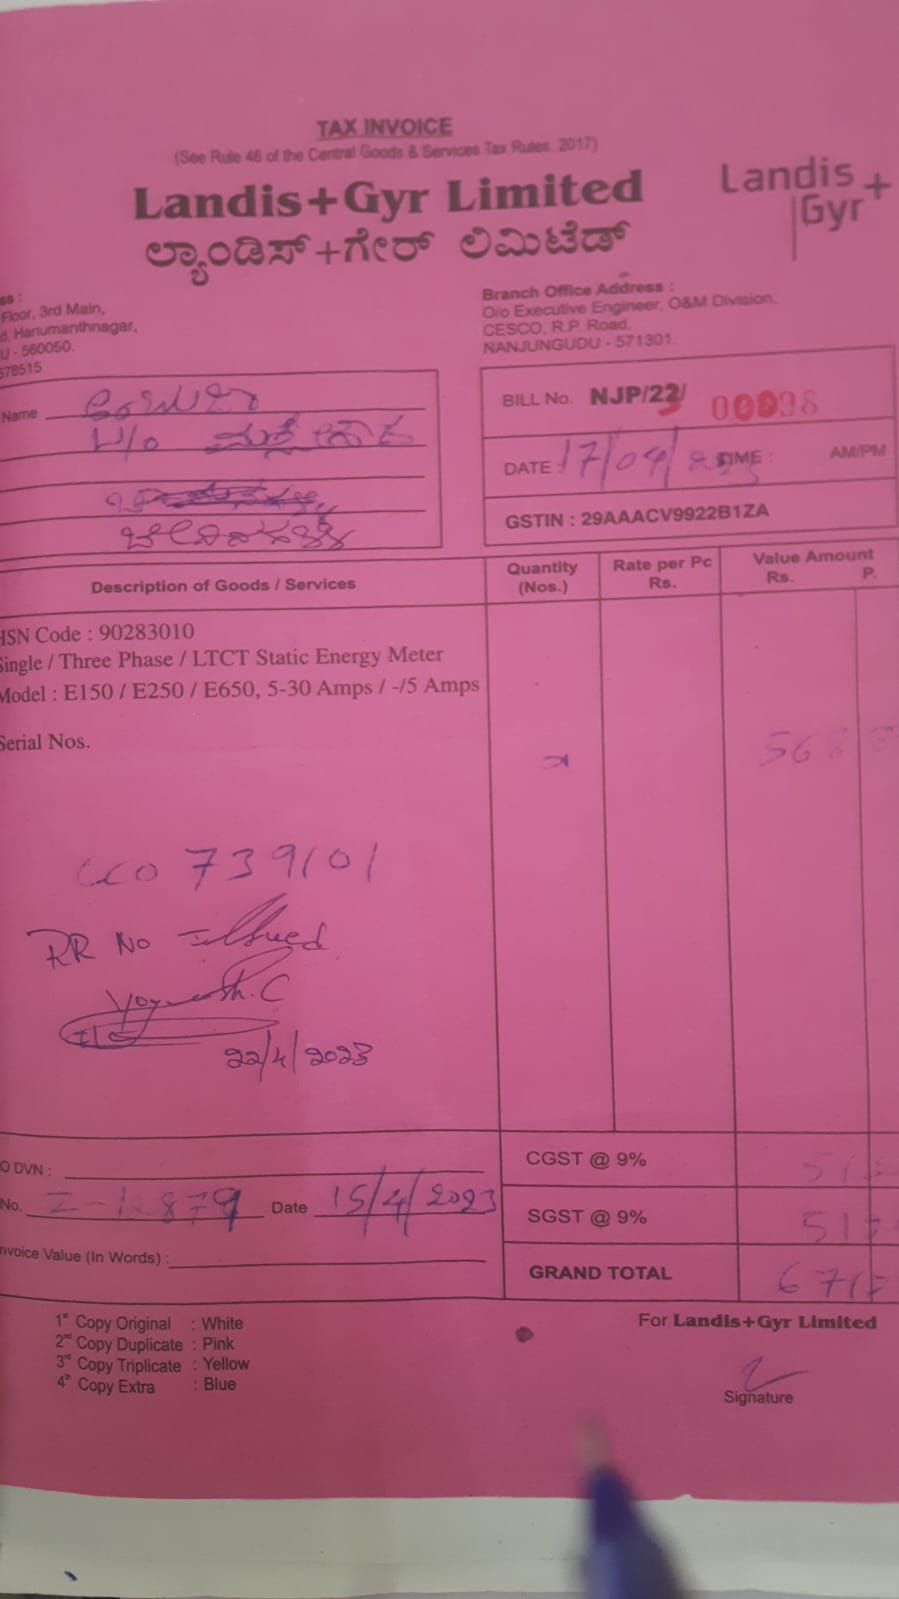 TAX INVOICE
(See Rule 46 of the Central Goods & Services Tax Rules. 2017)
Landis+Gyr Limited
ಲ್ಯಾಂಡಿಸ್+ಗೇರ್ ಲಿಮಿಟೆಡ್
Landis+
Gyr
Floor, 3rd Main,
Hanumanthnagar,
U - 560050.
578515
Branch Office Address :
O/o Executive Engineer, O&M Division,
CESCO, R.P. Road,
NANJUNGUDU - 571301.
Name
BILL No. NJP/23/
DATE : 17/04/ TIME : AM/PM
GSTIN : 29AAACV9922B1ZA
Description of Goods / Services
Quantity (Nos.)
Rate per Pc Rs.
Value Amount Rs. P.
HSN Code : 90283010
Single / Three Phase / LTCT Static Energy Meter
Model : E150 / E250 / E650, 5-30 Amps / -/5 Amps
Serial Nos.
739101
RR No
22/4/2023
O DVN :
No. Date 15/4/2023
Invoice Value (In Words) :
CGST @ 9%
SGST @ 9%
GRAND TOTAL
1st Copy Original : White
2nd Copy Duplicate : Pink
3rd Copy Triplicate : Yellow
4th Copy Extra : Blue
For Landis+Gyr Limited
Signature